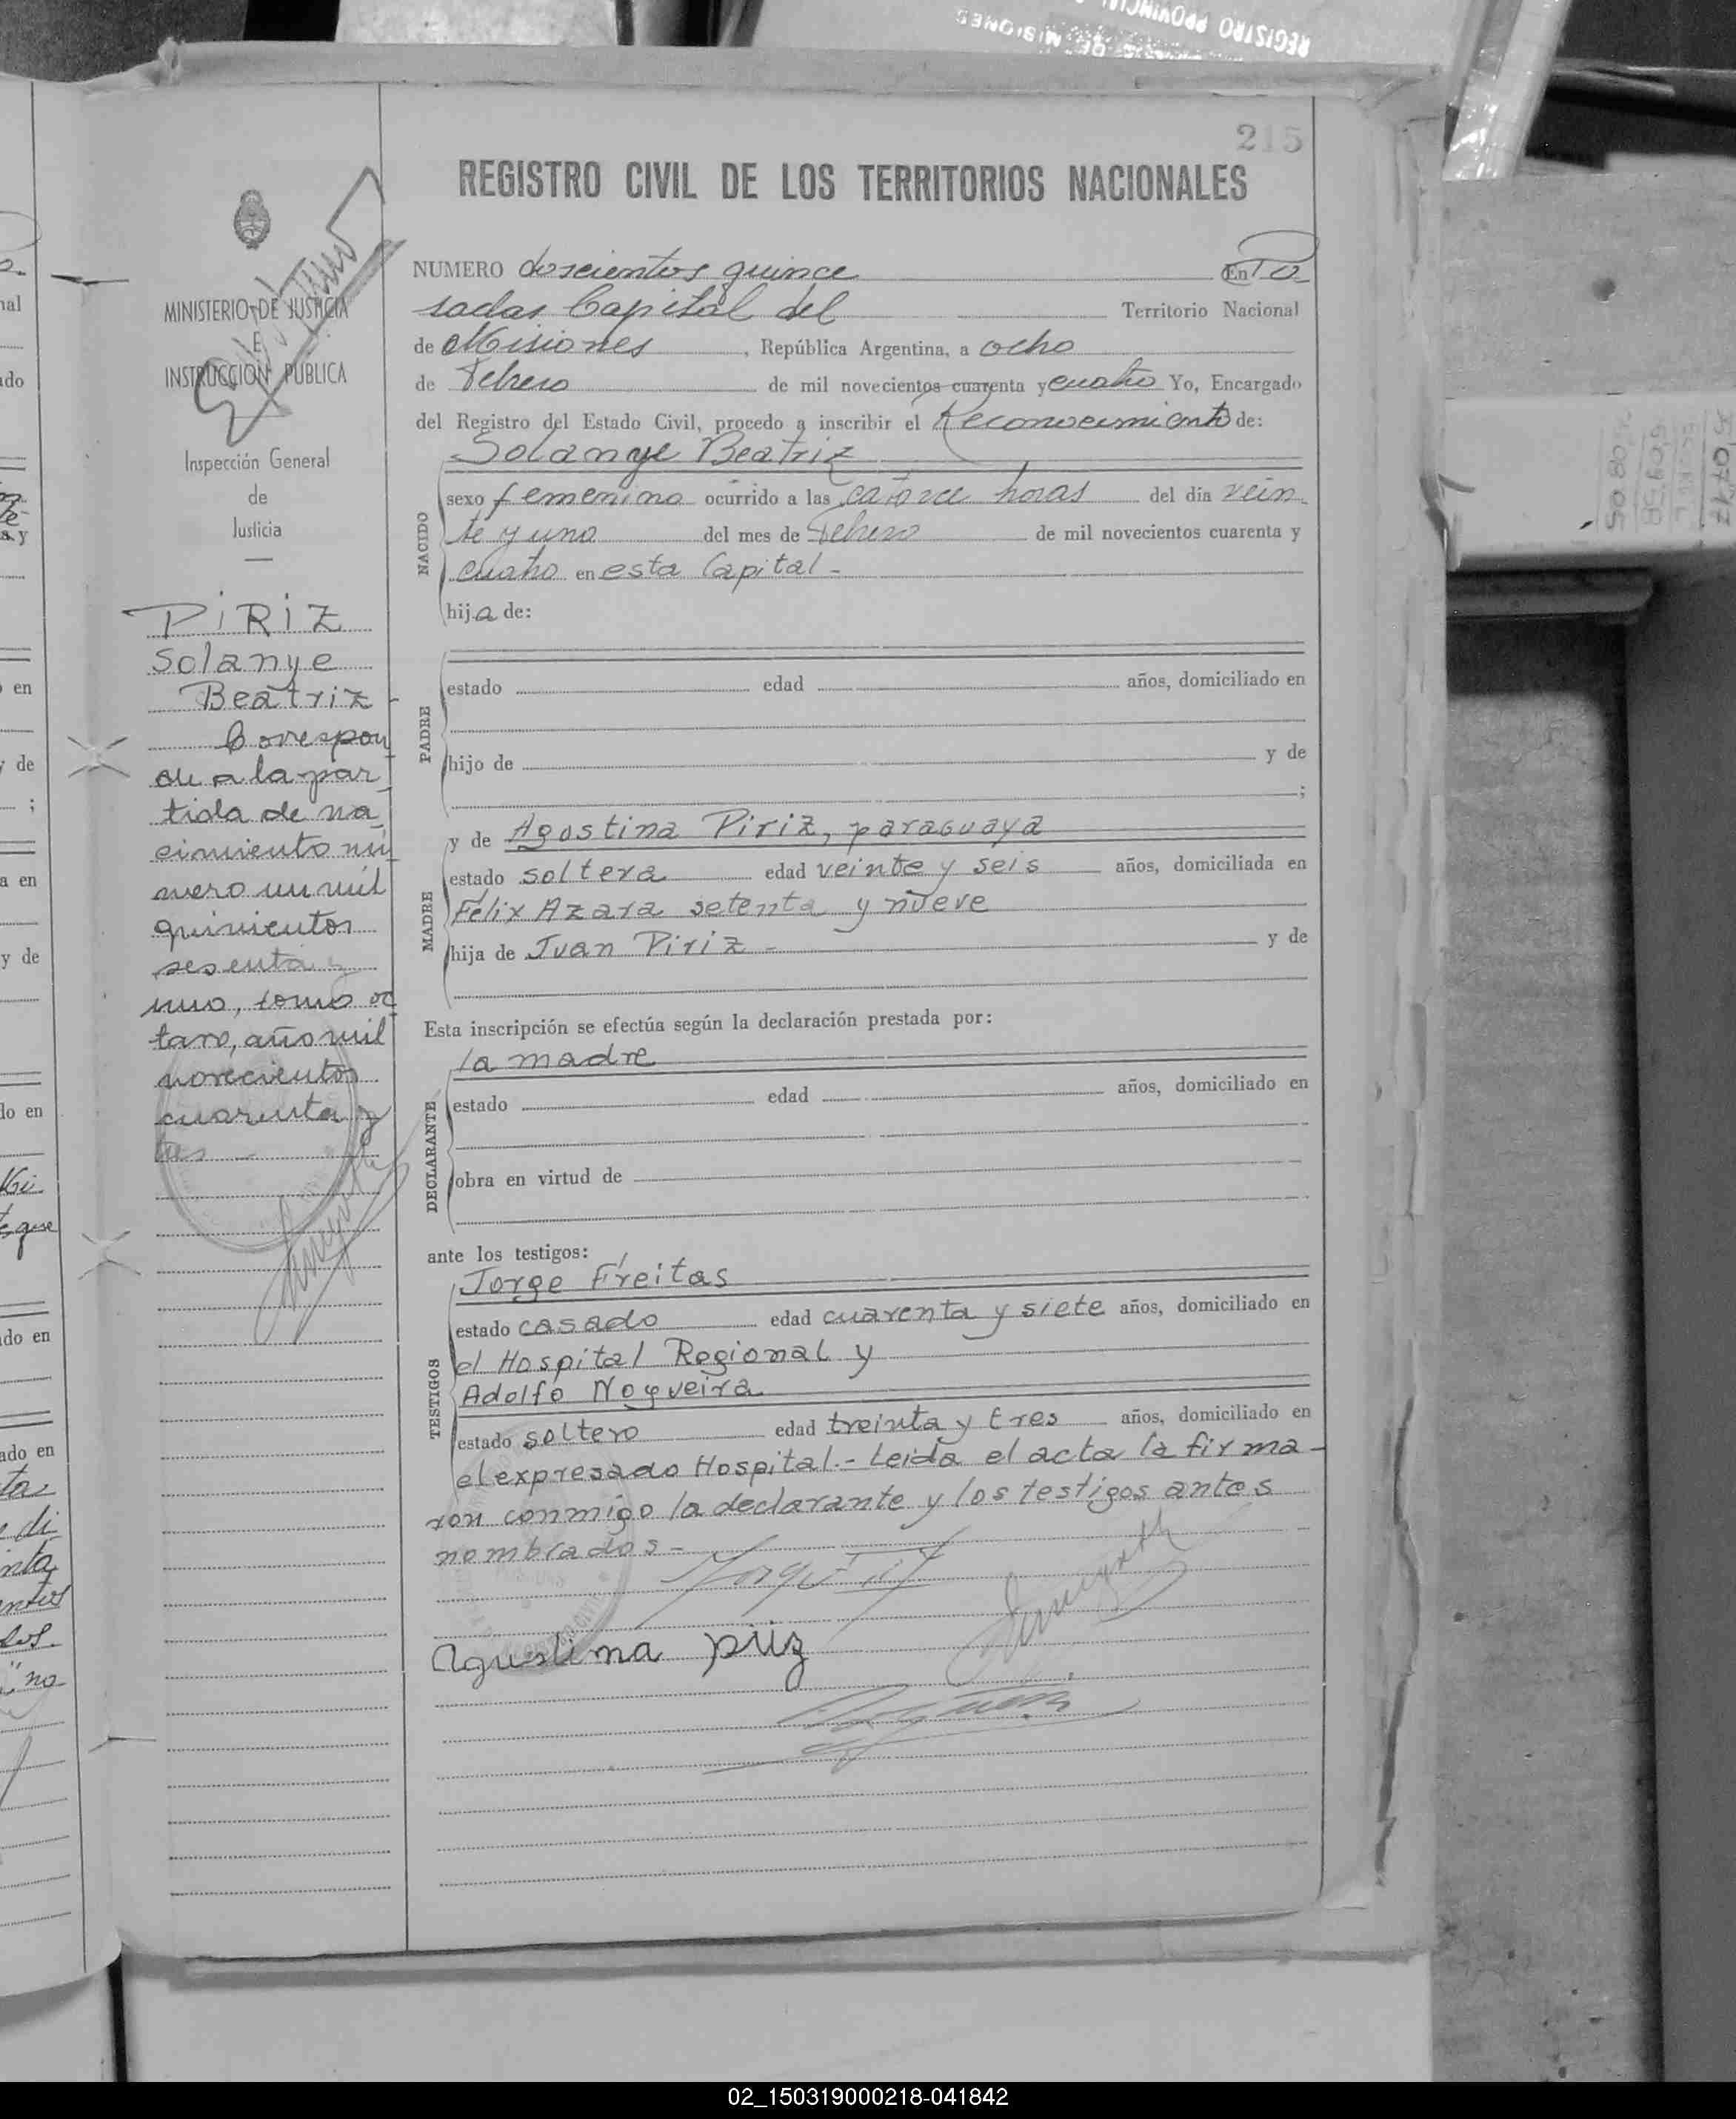 REGISTRO PROVINCIAL
DE MISIONES
215
REGISTRO CIVIL DE LOS TERRITORIOS NACIONALES
MINISTERIO DE JUSTICIA
E
INSTRUCCION PUBLICA
Inspección General
de
Justicia
PIRIZ
Solanye
Beatriz -
Correspon
de a la par
tida de na
cimiento nú
mero un mil
quinientos
sesenta y
uno, tomo oc
tavo, año mil
novecientos
cuarenta y
tres -
NUMERO doscientos quince En Po
sadas Capital del Territorio Nacional
de Misiones, República Argentina, a ocho
de Febrero de mil novecientos cuarenta y cuatro Yo, Encargado
del Registro del Estado Civil, procedo a inscribir el Reconocimiento de:
Solanye Beatriz
NACIDO
sexo femenino ocurrido a las catorce horas del día vein
te y uno del mes de Febrero de mil novecientos cuarenta y
cuatro en esta Capital -
hija de:
PADRE
estado edad años, domiciliado en
hijo de y de
;
MADRE
y de Agostina Piriz, paraguaya
estado soltera edad veinte y seis años, domiciliada en
Félix Azara setenta y nueve
hija de Juan Piriz - y de
Esta inscripción se efectúa según la declaración prestada por:
la madre
DECLARANTE
estado edad años, domiciliado en
obra en virtud de
ante los testigos:
TESTIGOS
Jorge Freitas
estado casado edad cuarenta y siete años, domiciliado en
el Hospital Regional y
Adolfo Nogveira
estado soltero edad treinta y tres años, domiciliado en
el expresado Hospital.- Leida el acta la firma-
ron conmigo la declarante y los testigos antes
nombrados -
Agustina piriz
50717
50958
50805
02_150319000218-041842